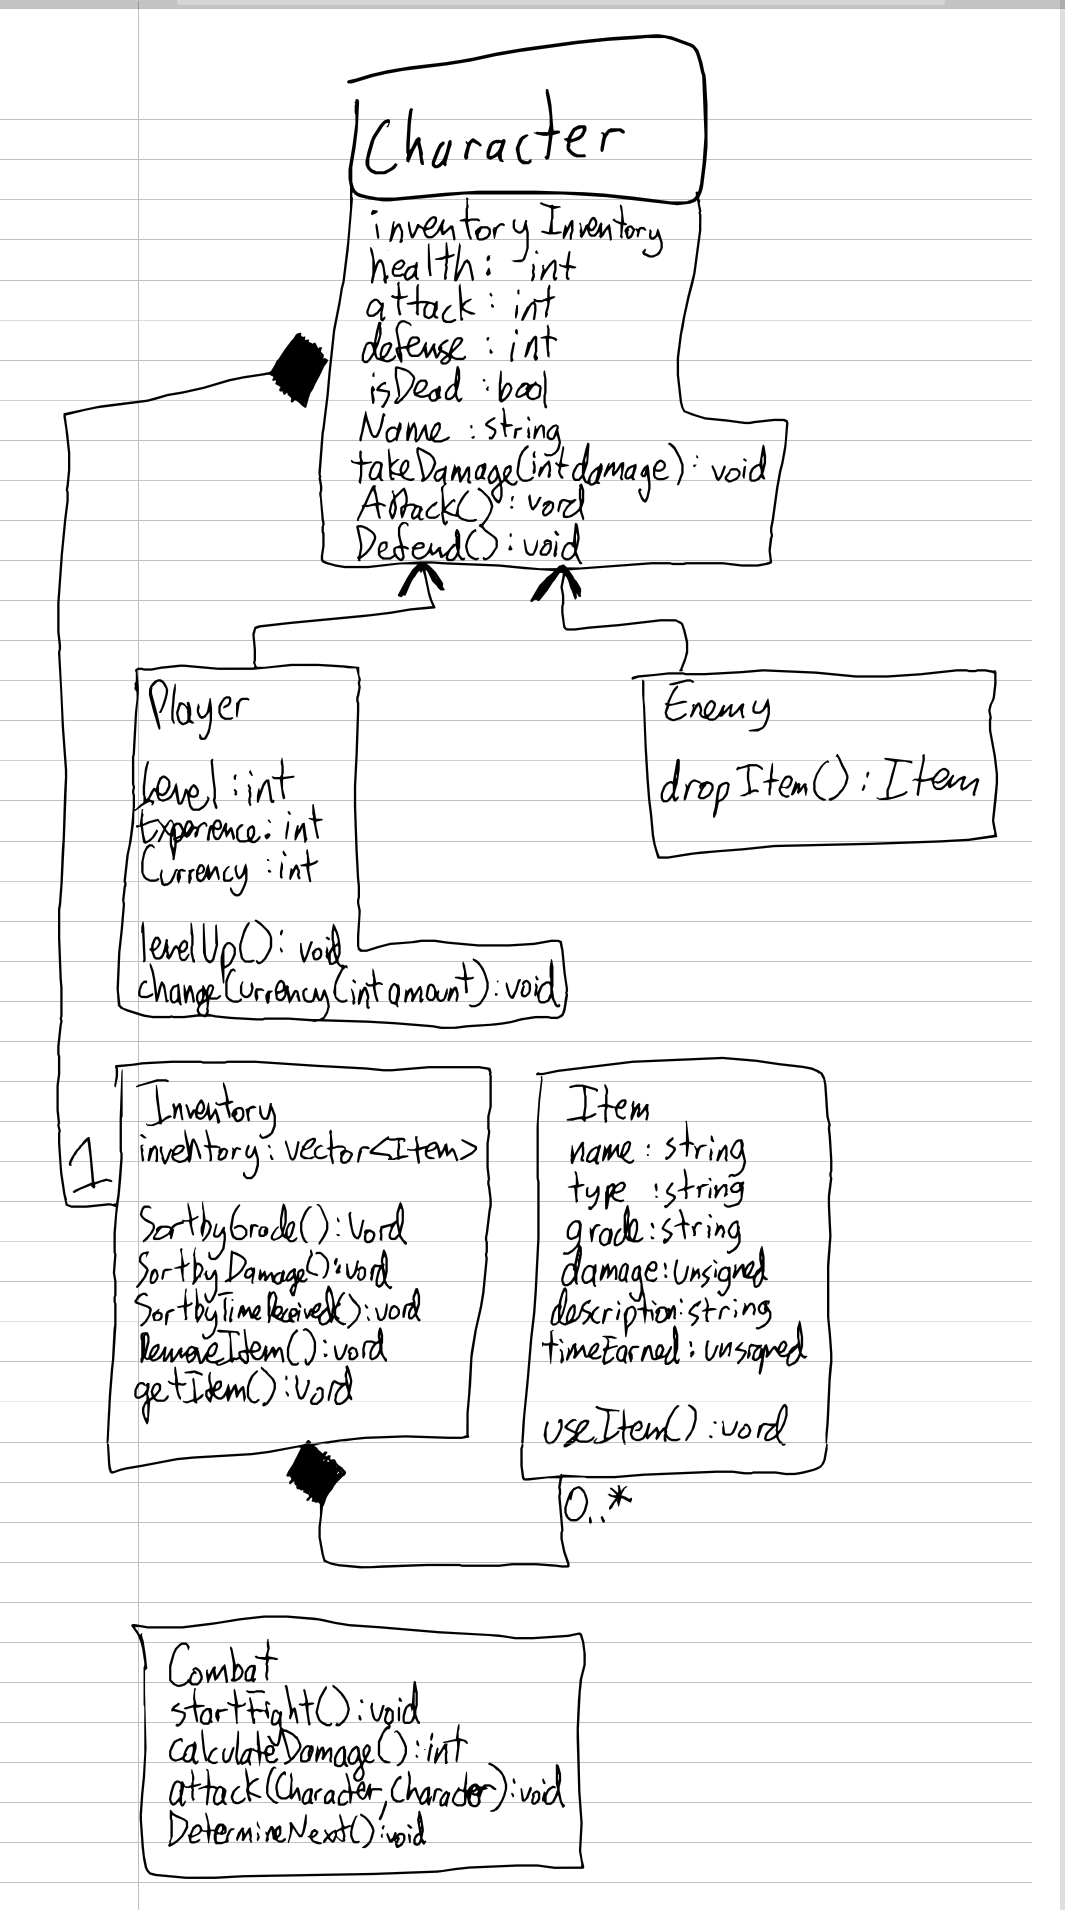 Character
inventory Inventory
health: int
attack: int
defense: int
isDead: bool
Name: string
takeDamage(int damage): void
Attack(): void
Defend(): void
Player
Level: int
Experience: int
Currency: int
levelUp(): void
changeCurrency(int amount): void
Enemy
dropItem(): Item
Inventory
inventory: vector<Item>
1
SortbyGrade(): void
SortbyDamage(): void
SortbyTimeReceived(): void
RemoveItem(): void
getItem(): void
Item
name: string
type: string
grade: string
damage: unsigned
description: string
timeEarned: unsigned
useItem(): void
0..*
Combat
startFight(): void
calculateDamage(): int
attack(Character, Character): void
DetermineNext(): void